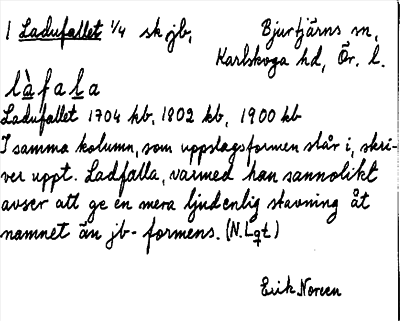 1 Ladufallet 1/4 sk jb, Bjurtjärns sn,
Karlskoga hd, Ör. l.
làfala
Ladufallet 1704 kb, 1802 kb, 1900 kb
I samma kolumn, som uppslagsformen står i, skri-
ver uppt. Ladfalla, varmed han sannolikt
avser att ge en mera ljudenlig stavning åt
namnet än jb-formens. (N. Lgt)
Erik Noreen